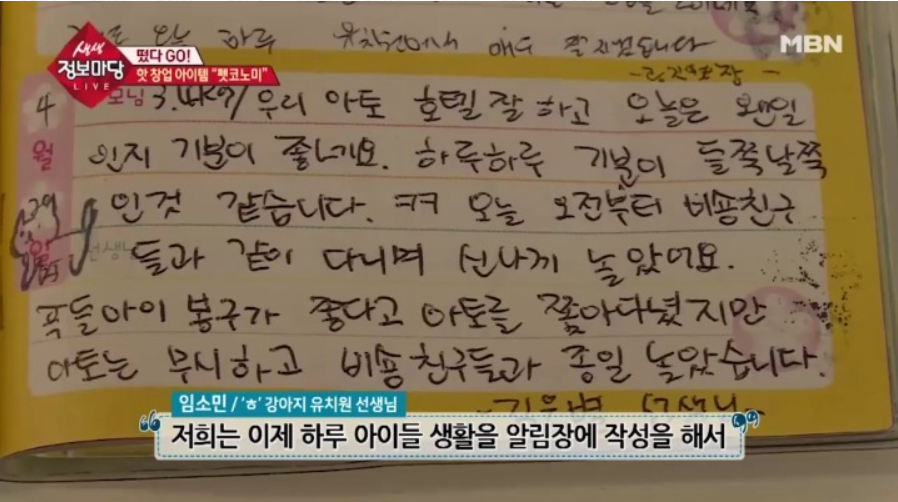 생생
정보마당
LIVE
떴다 GO!
핫 창업 아이템 "펫코노미"
MBN
하루 유치원에서 매우 즐거웠습니다
4
월
29
일
모님
3.4kg / 우리 아토 호텔 잘 하고 오늘은 왠일
인지 기분이 좋네요. 하루하루 기분이 들쭉날쭉
인것 같습니다. ㅋㅋ 오늘 오전부터 비숑친구
선생님
들과 같이 다니며 신나게 놀았어요.
푸들아이 봉구가 좋다고 아토를 쫓아다녔지만
아토는 무시하고 비숑친구들과 종일 놀았습니다.
선생님-
임소민 / 'ㅎ' 강아지 유치원 선생님
"저희는 이제 하루 아이들 생활을 알림장에 작성을 해서"